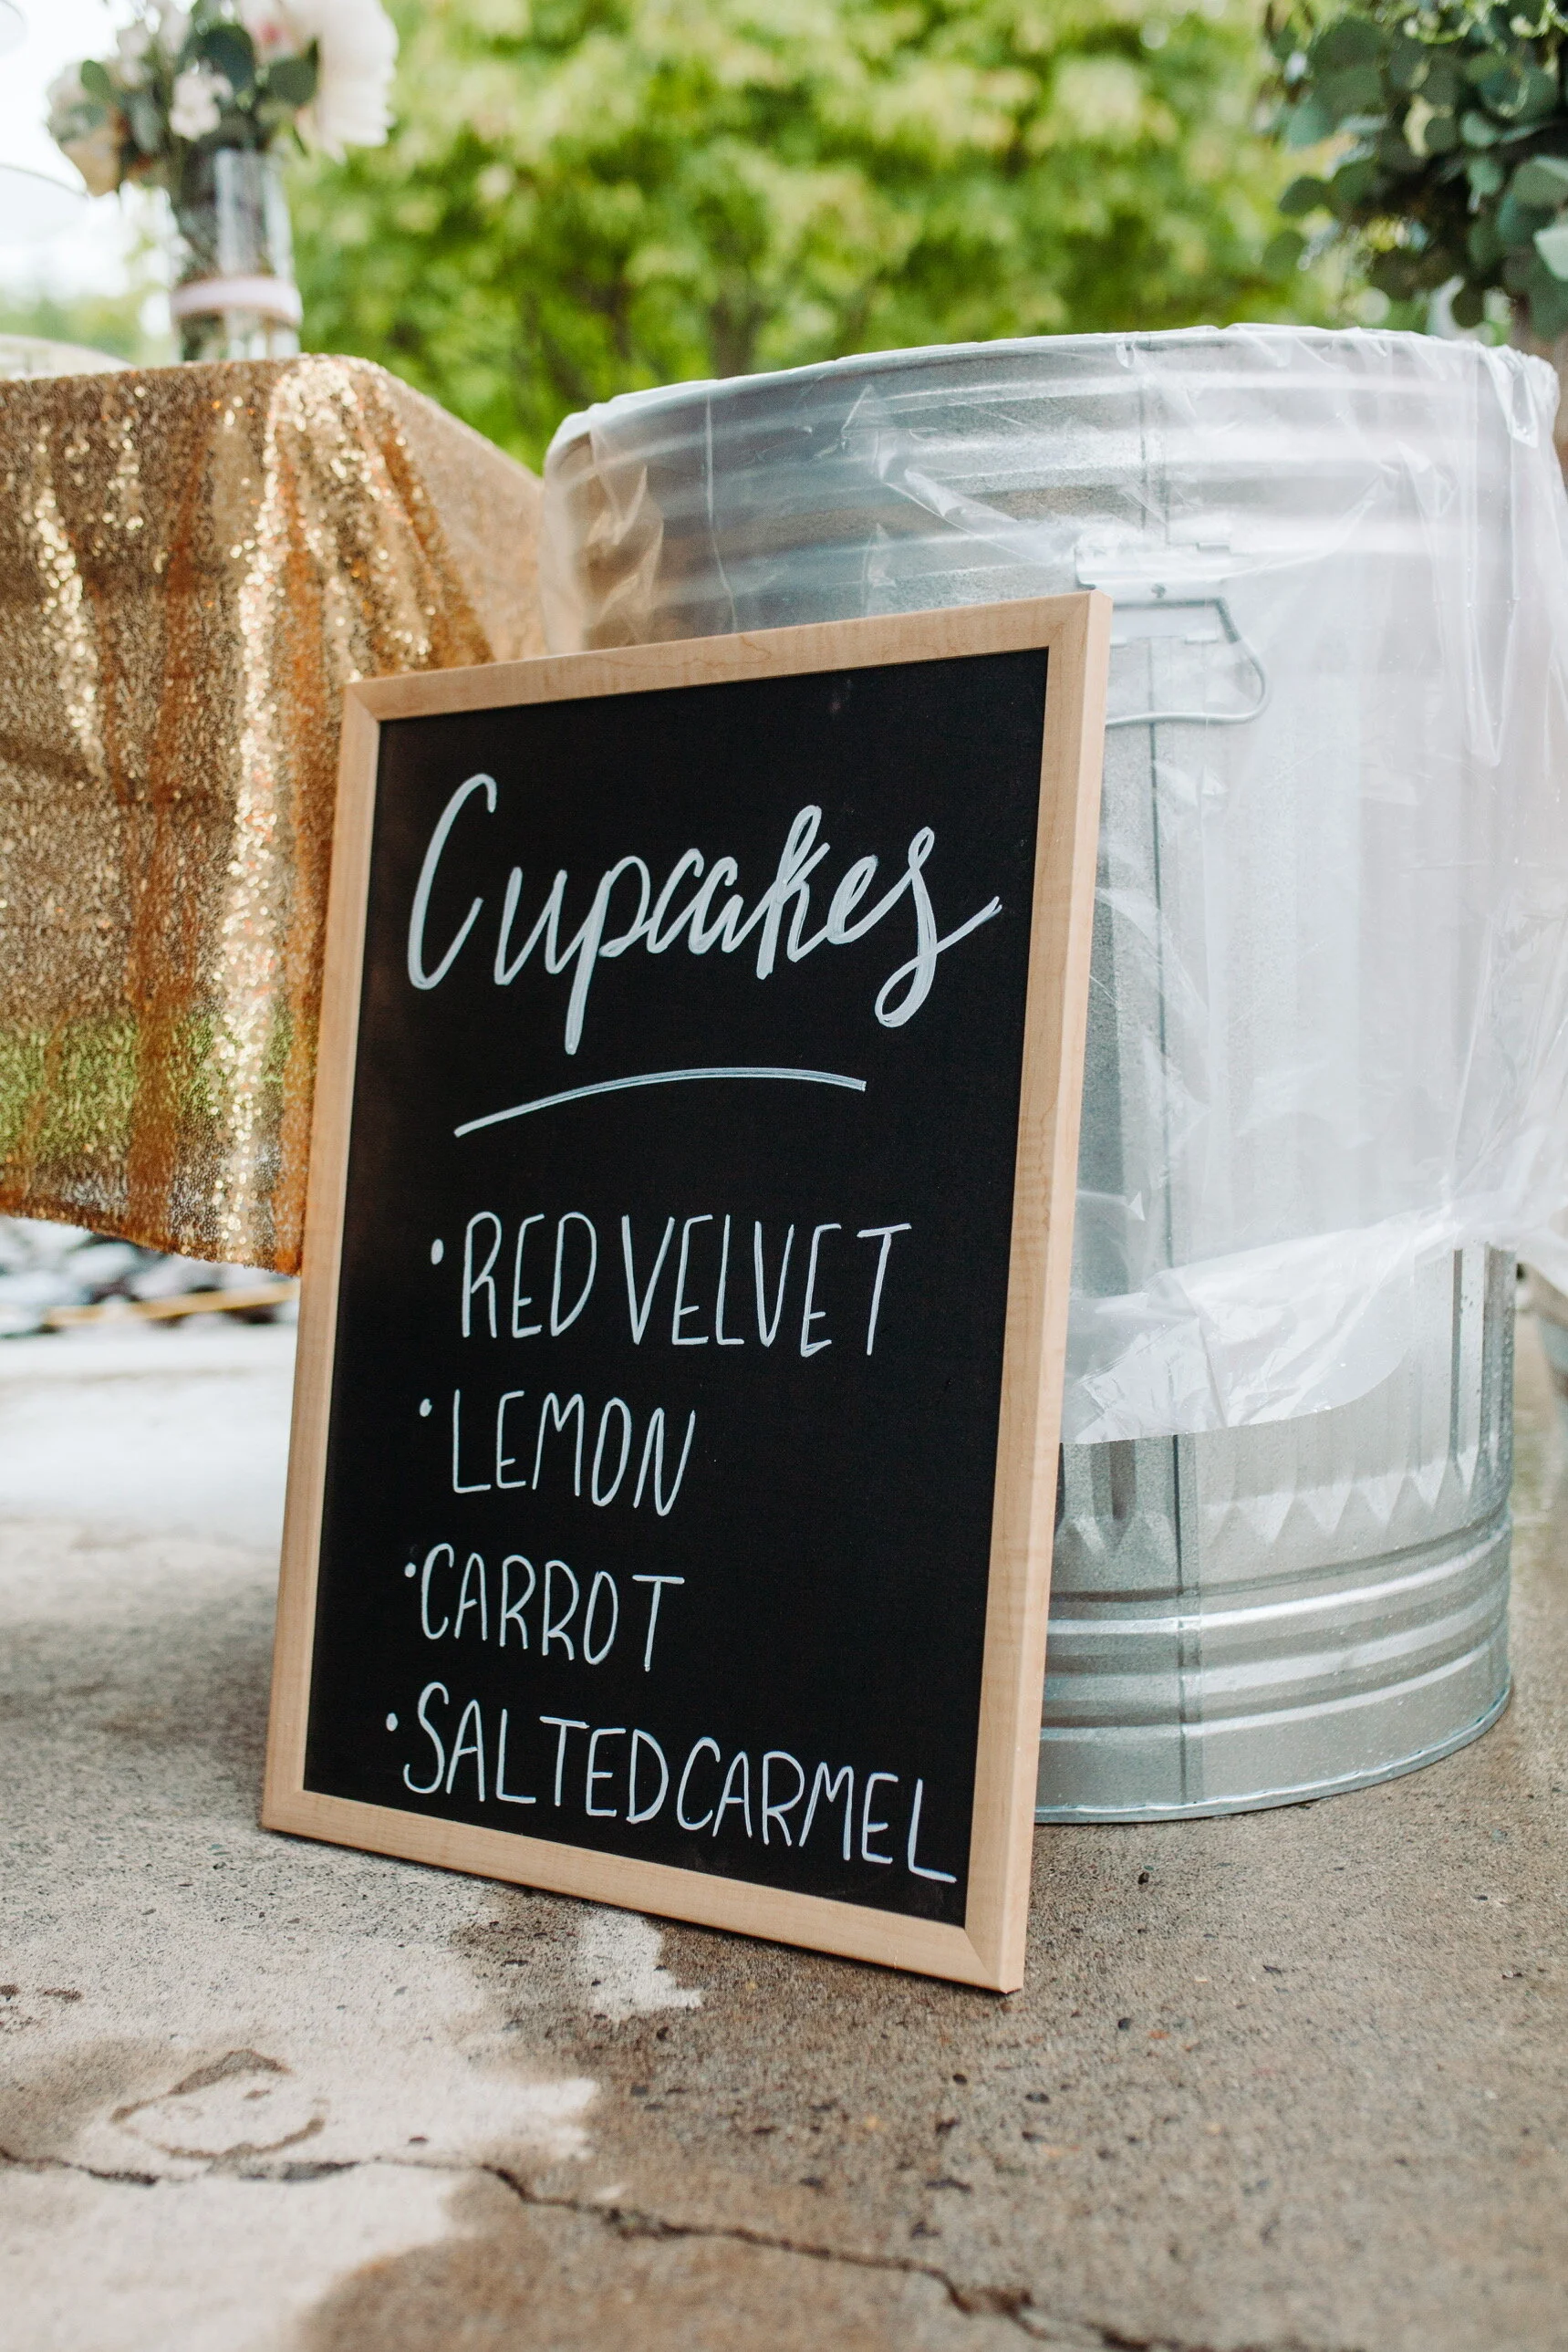 Cupcakes
• RED VELVET
• LEMON
• CARROT
• SALTED CARMEL